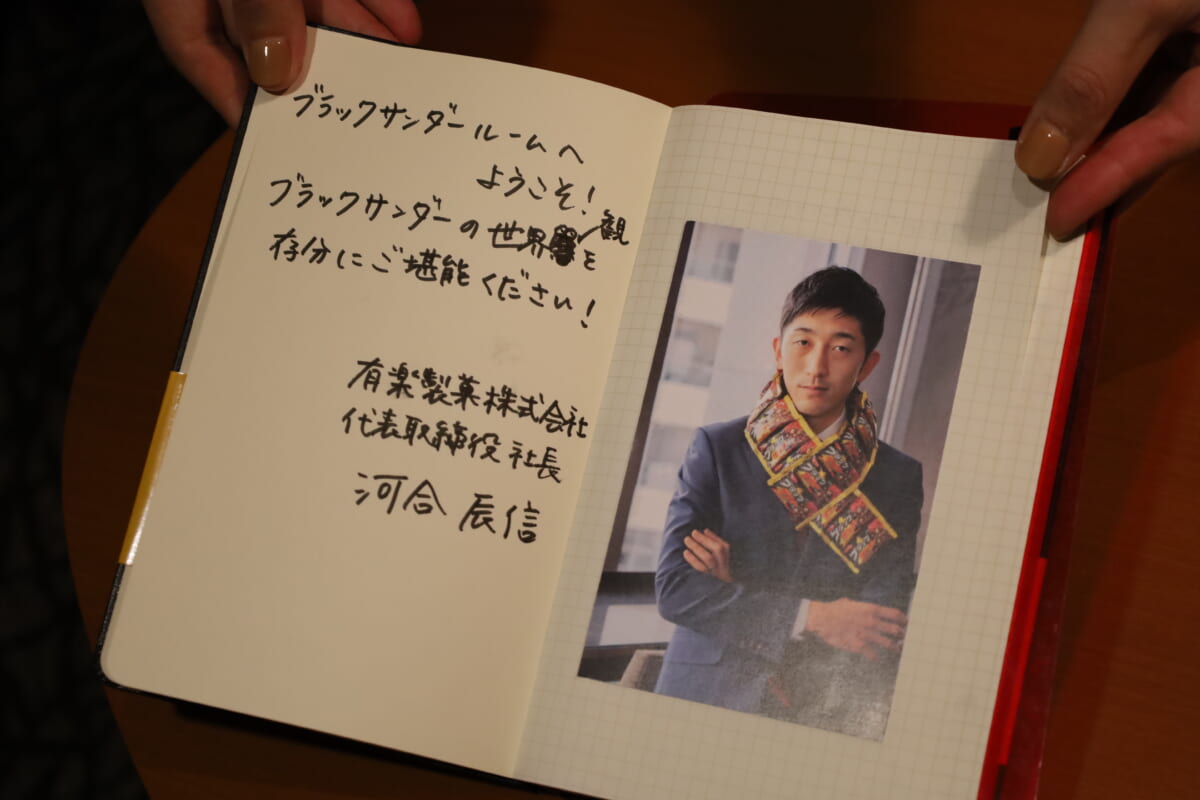 ブラックサンダールームへ
ようこそ！
ブラックサンダーの世界観を
存分にご堪能ください！
有楽製菓株式会社
代表取締役社長
河合 辰信